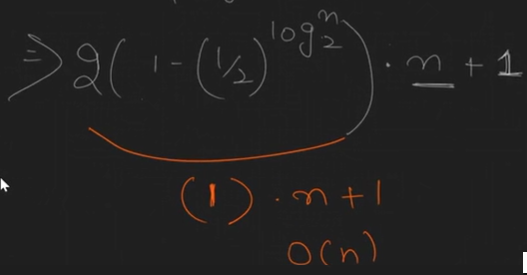 ⇒ 2(1-(1/2)^log₂ⁿ) · n + 1
(1) · n + 1
O(n)